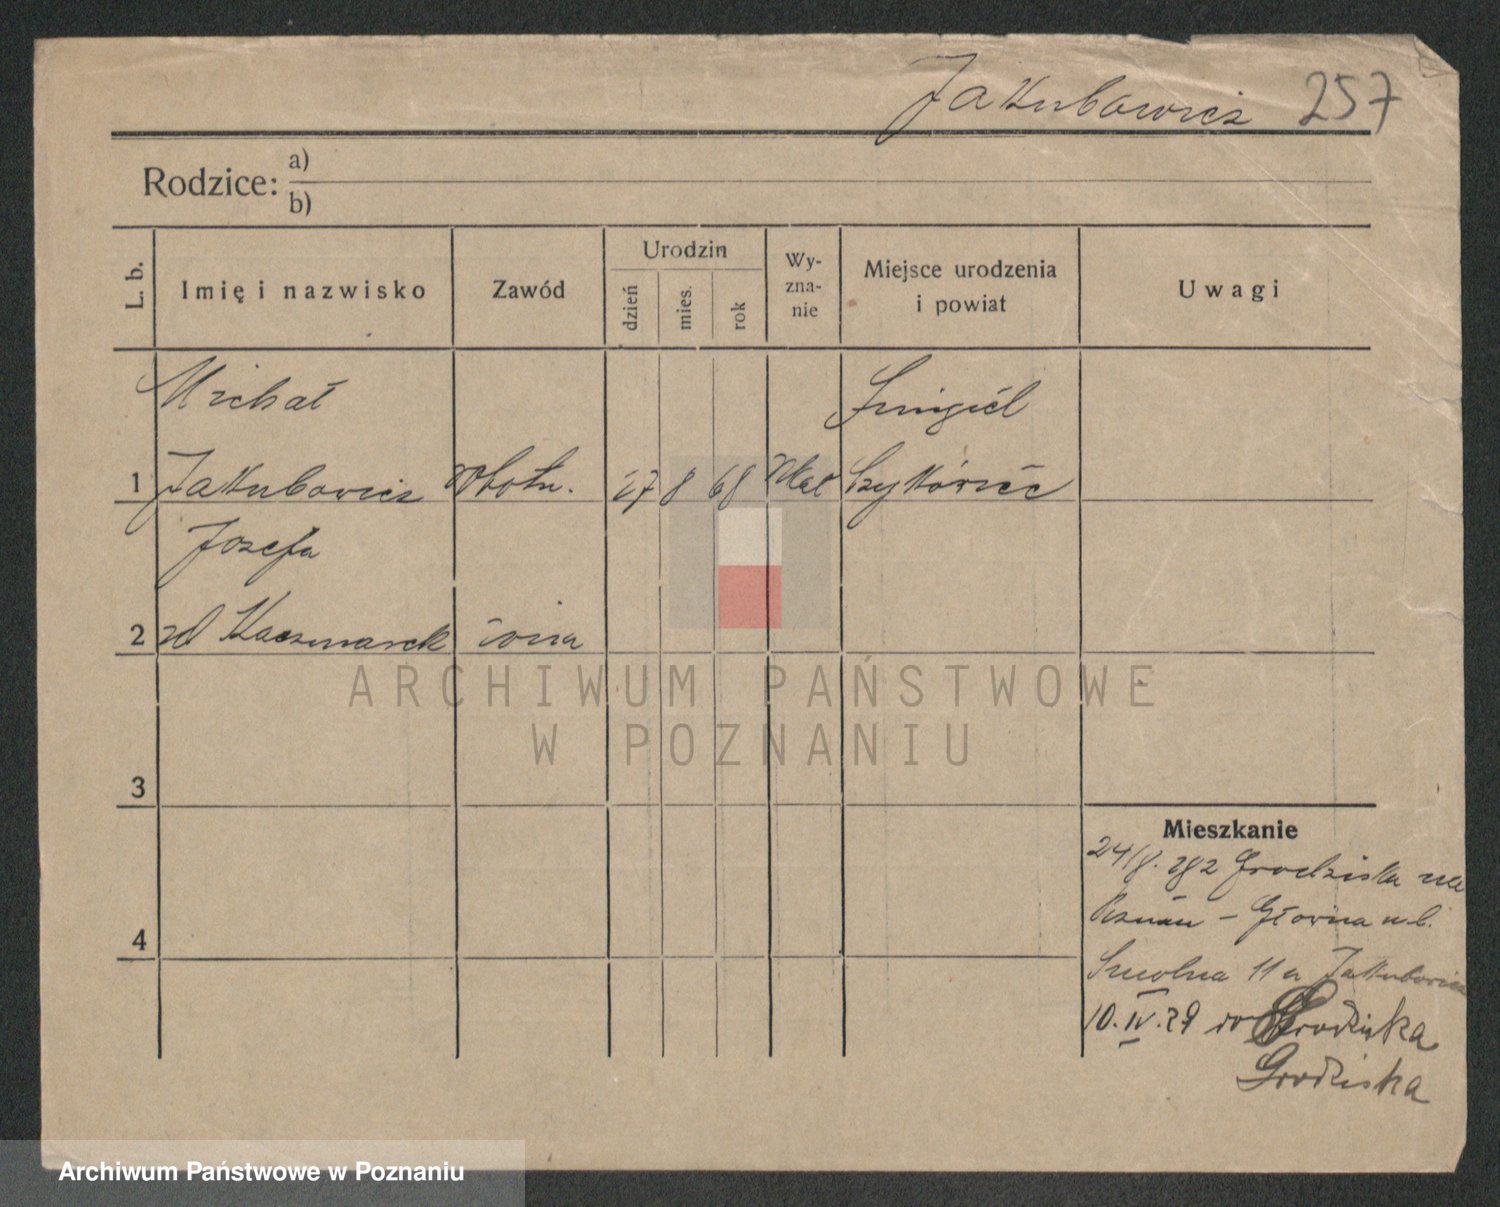 Jakubowicz 257
Rodzice: a)
b)
L. b.
Imię i nazwisko
Zawód
Urodzin
dzień
mies.
rok
Wy-
zna-
nie
Miejsce urodzenia
i powiat
Uwagi
Michał
Śmigiel
1 Jakubowicz robotn. 27 8 68
Józefa
2 zd Kaczmarek żona
3
4
Mieszkanie
24/8. 282 Grodziska na
Poznań - Główna u.l.
Smolna 11 a Jakubowicz
10.IV.29 do Grodziska
Grodziska
ARCHIWUM PAŃSTWOWE
W POZNANIU
Archiwum Państwowe w Poznaniu